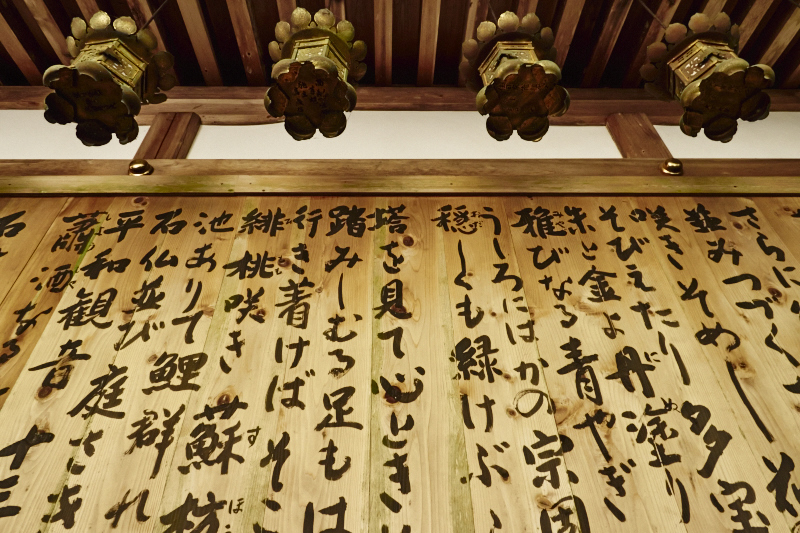 さらに
並みつづく
咲きそめし花
そびえたり多宝
朱と金よ丹塗り
雅びなる青やぎ
うしろにはかの宗因
穏しくも緑けぶ
塔を見て心とき
踏みしむる足もは
行き着けばそこ
緋桃咲き蘇枋
池ありて鯉群れ
石仏並び庭さき
平和観音十三
石